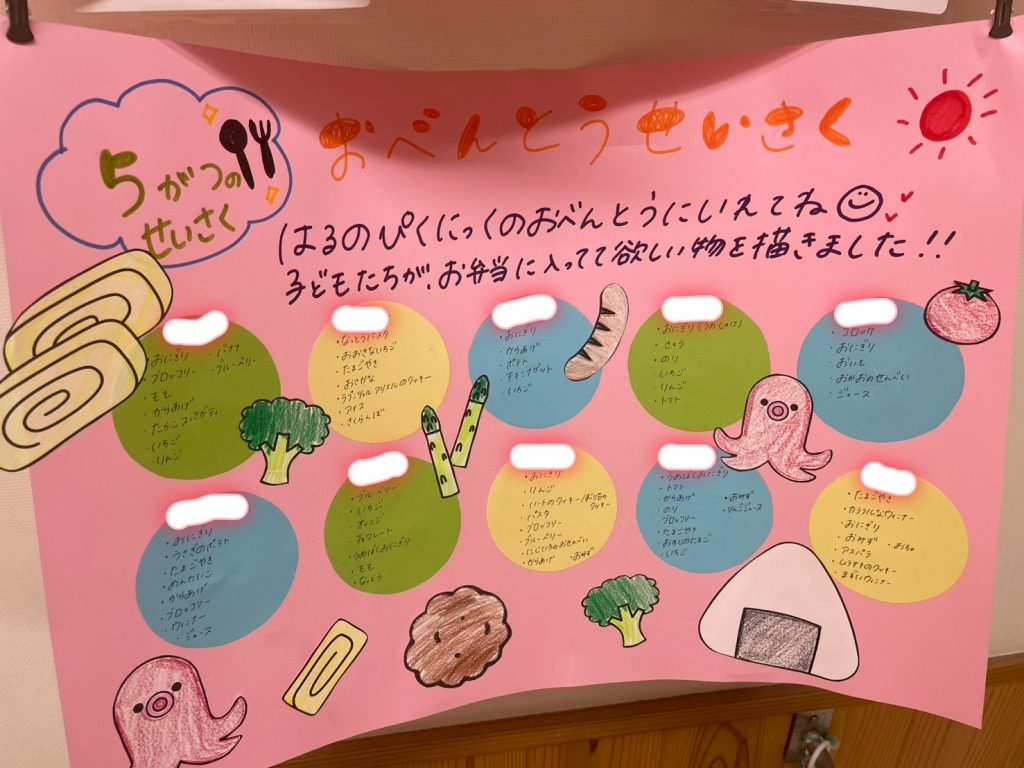 5がつの
せいさく
おべんとうせいさく
はるのぴくにっくのおべんとうにいれてね
子どもたちが、お弁当に入ってて欲しい物を描きました!!
・おにぎり ・バナナ
・ブロッコリー ・ブルーベリー
・もも
・からあげ
・たらこスパゲティ
・いちご
・りんご
・なっとうパスタ
・おおきないちご
・たまごやき
・おさかな
・ラプンツェル、アリエルのクッキー
・アイス
・さくらんぼ
・おにぎり
・からあげ
・ポテト
・チキンナゲット
・いちご
・おにぎり(うめ・しゃけ)
・さとう
・のり
・いちご
・りんご
・トマト
・コロッケ
・おにぎり
・おいも
・おかおのせんべい
・ジュース
・おにぎり
・うさぎのポテト
・たまごやき
・めんたいこ
・からあげ
・ブロッコリー
・ウィンナー
・ジュース
・ブルーベリー
・いちご
・オレンジ
・チョコレート
・うめぼしおにぎり
・もも
・なっとう
・おにぎり
・りんご
・ハートのクッキー/おりものクッキー
・パスタ
・ブロッコリー
・ブルーベリー
・にじいろのおせんべい
・からあげ ・おみず
・うめぼしおにぎり
・トマト
・からあげ ・おみず
・のり ・りんごジュース
・ブロッコリー
・たまごやき
・おすしのたまご
・いちご
・たまごやき
・カラフルなウィンナー
・おにぎり
・おみず ・おちゃ
・アスパラ
・ムラサキのクッキー
・まずいウィンナー